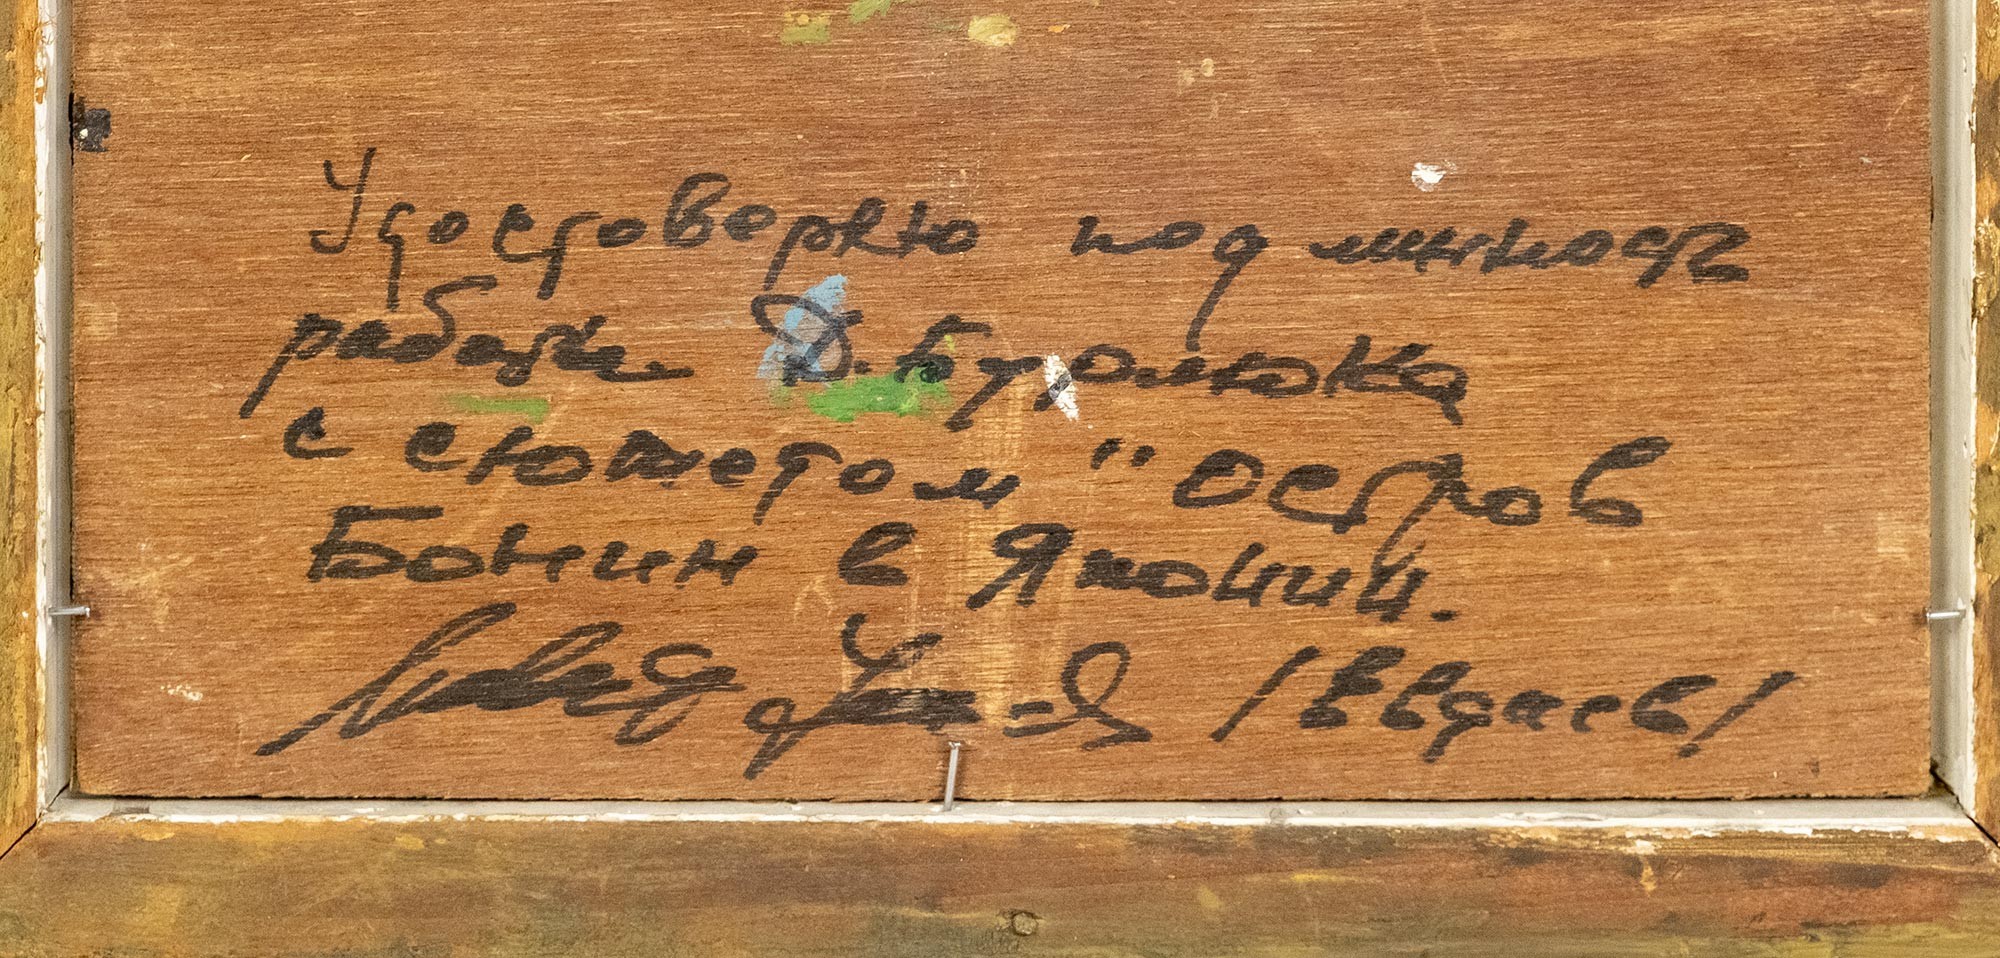 Удостоверяю подлинность
работы Д. Бурлюка
с сюжетом "Остров
Бонин в Японии.
/Авдеев/